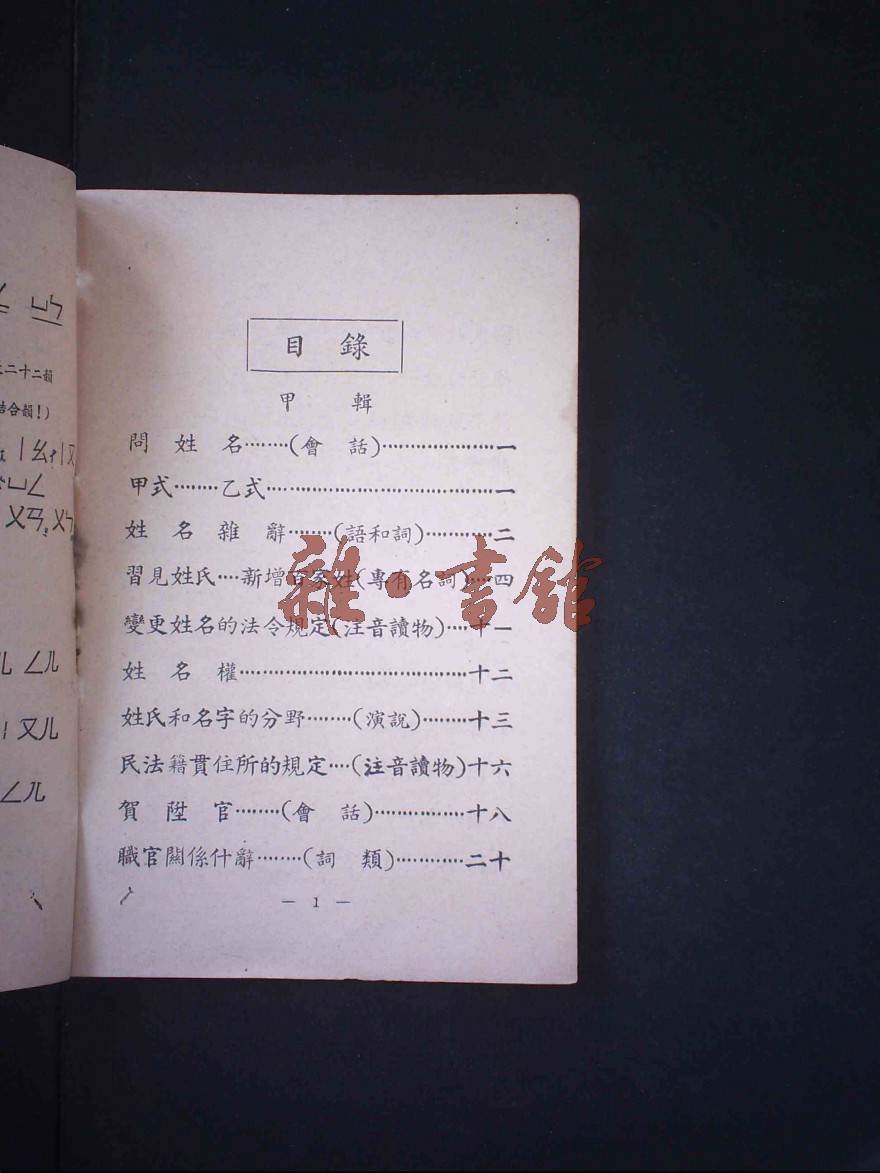 目錄
甲 輯
問 姓 名………(會 話)…………………一
甲式………乙式……………………………………一
姓 名 雜 辭………(語和詞)…………二
習見姓氏….新增百家姓(專有名詞)….四
變更姓名的法令規定(注音讀物)….十一
姓 名 權…………………………………十二
姓氏和名字的分野………(演說)………十三
民法籍貫住所的規定….(注音讀物)十六
賀 陞 官………(會 話)………………十八
職官關係什辭………(詞 類)…………二十
— 1 —
二十二韻
結合韻!)
雜·書館